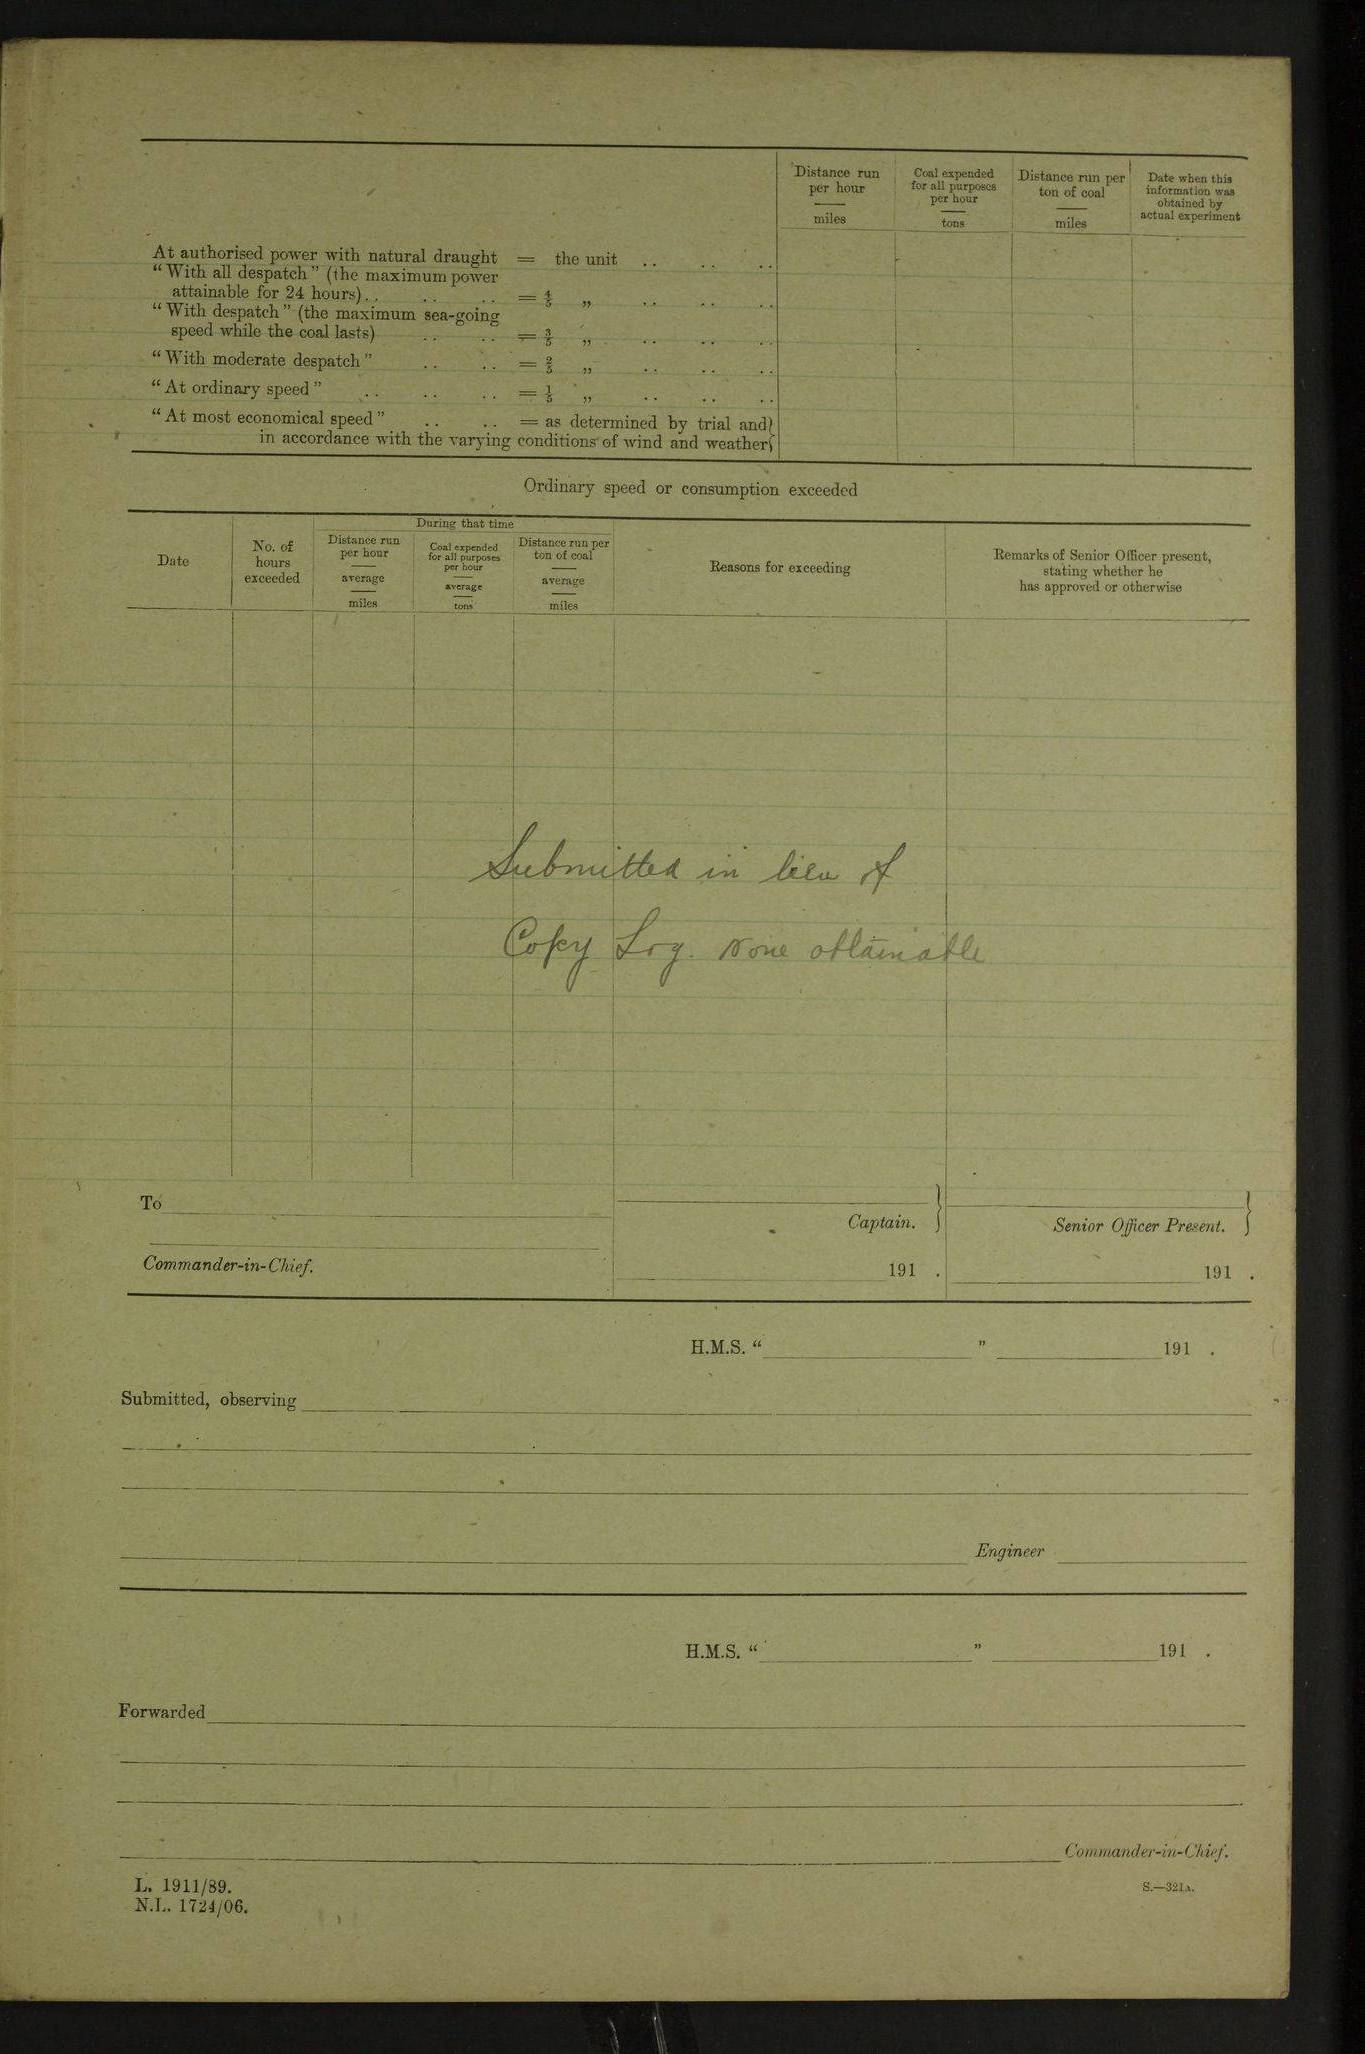 Distance run per hour miles
Coal expended for all purposes per hour tons
Distance run per ton of coal miles
Date when this information was obtained by actual experiment
At authorised power with natural draught = the unit .. .. ..
“With all despatch” (the maximum power
attainable for 24 hours).. .. .. = 4/5 „ .. .. ..
“With despatch” (the maximum sea-going
speed while the coal lasts) .. .. = 3/5 „ .. .. ..
“With moderate despatch” .. .. = 2/5 „ .. .. ..
“At ordinary speed” .. .. .. = 1/5 „ .. .. ..
“At most economical speed” .. .. = as determined by trial and
in accordance with the varying conditions of wind and weather
Ordinary speed or consumption exceeded
Date
No. of hours exceeded
During that time
Distance run per hour average miles
Coal expended for all purposes per hour average tons
Distance run per ton of coal average miles
Reasons for exceeding
Remarks of Senior Officer present, stating whether he has approved or otherwise
Submitted in lieu of
Copy Log. None obtainable
To
Captain.
Senior Officer Present.
Commander-in-Chief.
191 .
191 .
H.M.S. “ ” 191 .
Submitted, observing
Engineer
H.M.S. “ ” 191 .
Forwarded
Commander-in-Chief.
L. 1911/89.
N.L. 1724/06.
S.—321A.